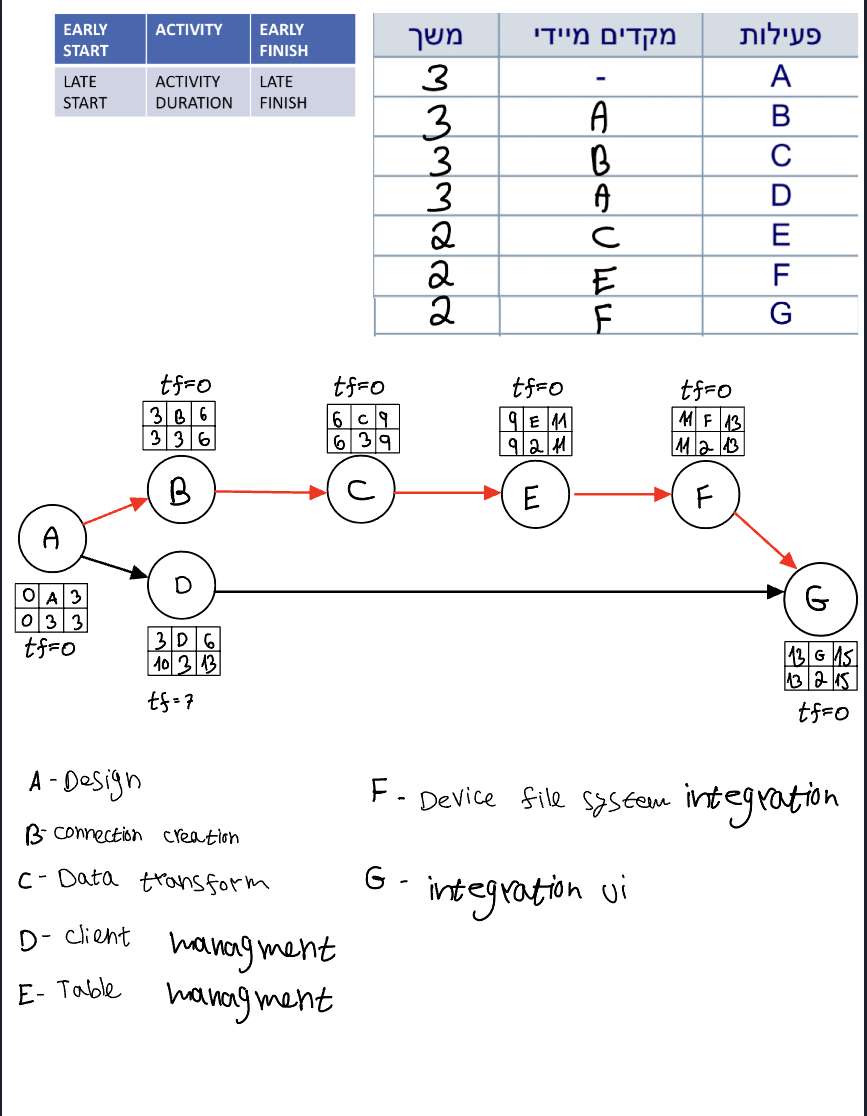 EARLY START ACTIVITY EARLY FINISH
LATE START ACTIVITY DURATION LATE FINISH
פעילות מקדים מיידי משך
A - 3
B A 3
C B 3
D A 3
E C 2
F E 2
G F 2
tf=0 tf=0 tf=0 tf=0
3 B 6 6 C 9 9 E 11 11 F 13
3 3 6 6 3 9 9 2 11 11 2 13
B C E F
A
D G
0 A 3
0 3 3
tf=0
3 D 6
10 3 13
tf=7
13 G 15
13 2 15
tf=0
A - Design
B- connection creation
C - Data transform
D- client managment
E- Table managment
F - Device file system integration
G - integration ui